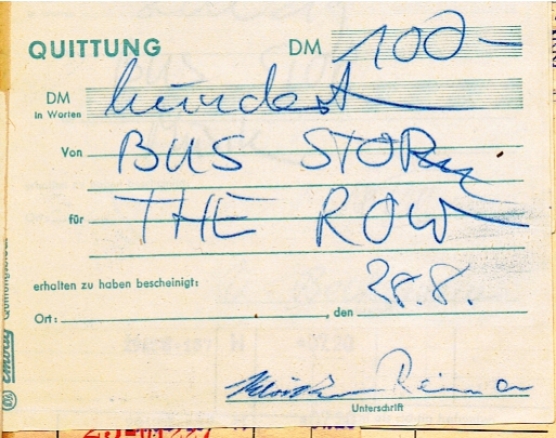 QUITTUNG DM 100-
DM in Worten hundert
Von BUS STOP
für THE ROW
erhalten zu haben bescheinigt: 28.8.
Ort: , den
Unterschrift